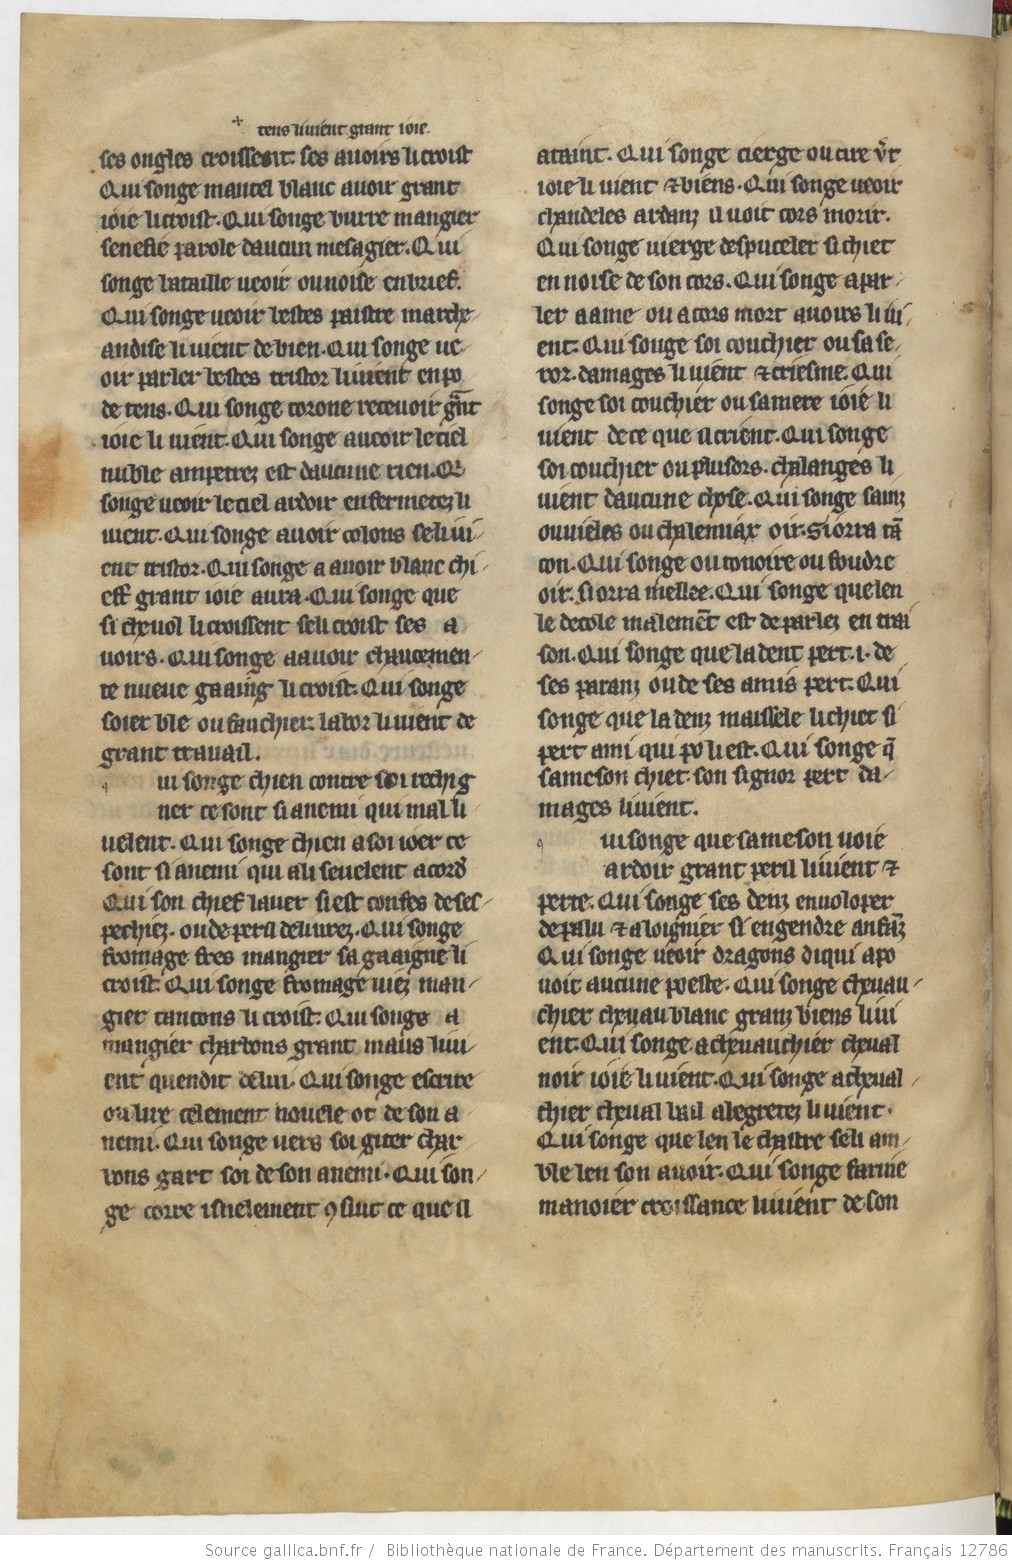 tens li uient grant ioie.
ses ongles croissent. ses auoirs li croist
Qui songe mantel blanc auoir grant
ioie li croist. Qui songe burre mangier
senefie parole daucun mesagier. Qui
songe bataille ueoir ou noise en brief.
Qui songe ueoir bestes paistre marche-
andise li uient de bien. Qui songe ue-
oir parler bestes tristor li uient en po
de tens. Qui songe corone receuoir gnt
ioie li uient. Qui songe aueoir le ciel
nuble est daucune rien. Q
songe ueoir le ciel ardoir enfermetez li
uient. Qui songe auoir colons se li ui-
ent tristor. Qui songe a auoir blanc chi-
eff grant ioie aura. Qui songe que
si cheuol li croissent se li croist ses a
uoirs. Qui songe a auoir chaucemen-
te nueue gaaing li croist. Qui songe
soier ble ou fauchier. labor li uient de
grant trauail.
ui songe chien contre soi rechig
ner ce sont si anemi qui mal li
uelent. Qui songe chien a soi ioer ce
sont si anemi qui a li seuelent acord
Qui son chief lauer si est confes de ses
pechiez. ou de peril deliurez. Qui songe
fromage fres mangier sa gaaigne li
croist. Qui songe fromage uiez man-
gier tancons li croist. Qui songe a
mangier charbons grant maus li ui
ent quen dit de lui. Qui songe escrire
ou lire celement nouele ot de son a
nemi. Qui songe uers soi giter char
bons gart soi de son anemi. Qui son-
ge corre isnelement 9 suit ce que il
ataint. Qui songe cierge ou cire
ioie li uient & biens. Qui songe ueoir
chandeles ardanz il uoit cors morir.
Qui songe uierge despuceler si chiet
en noise de son cors. Qui songe a par-
ler a ame ou a cors mort auoirs li ui-
ent. Qui songe soi couchier ou sa se-
ror. damages li uient & criesme. Qui
songe soi couchier ou sa mere ioie li
uient de ce que il crient. Qui songe
soi couchier ou plusors. chalanges li
uient daucune chose. Qui songe sainz
ou uieles ou chalemiax oir. si orra ta
con. Qui songe ou tonoire ou foudre
oir. si orra mellee. Qui songe que len
le decole malement est departez en trai
son. Qui songe que la dent pert .i. de
ses paranz ou de ses amis pert. Qui
songe que la denz maissele li chiet si
pert ami qui po li est. Qui songe q
sa meson chiet. son signor pert da-
mages li uient.
ui songe que sa meson uoie
ardoir grant peril li uient &
perte. Qui songe ses denz enuoloper
de palu & aloignier si engendre anfanz
Qui songe ueoir dragons di qui a po
uoir aucune poeste. Qui songe cheuau-
chier cheuau blanc granz biens li ui
ent. Qui songe a cheuauchier cheual
noir ioie li uient. Qui songe a cheual-
chier cheual bail alegretez li uient.
Qui songe que len le chastre se li am-
ble len son auoir. Qui songe farine
manoier croissance li uient de son
Source gallica.bnf.fr / Bibliothèque nationale de France. Département des manuscrits. Français 12786